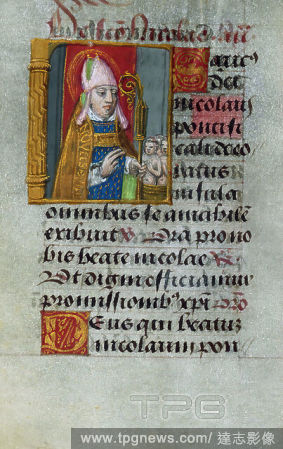 nicolaus
pontifi
cali deco
ratus
infula
omnibus se amabilem
exibuit Ora pro no
bis beate nicolae
Ut digni officiamur
promissionibꝰ xpi
Deus qui beatum
nicolaum pon
TPG
www.tpgnews.com/ 達志影像